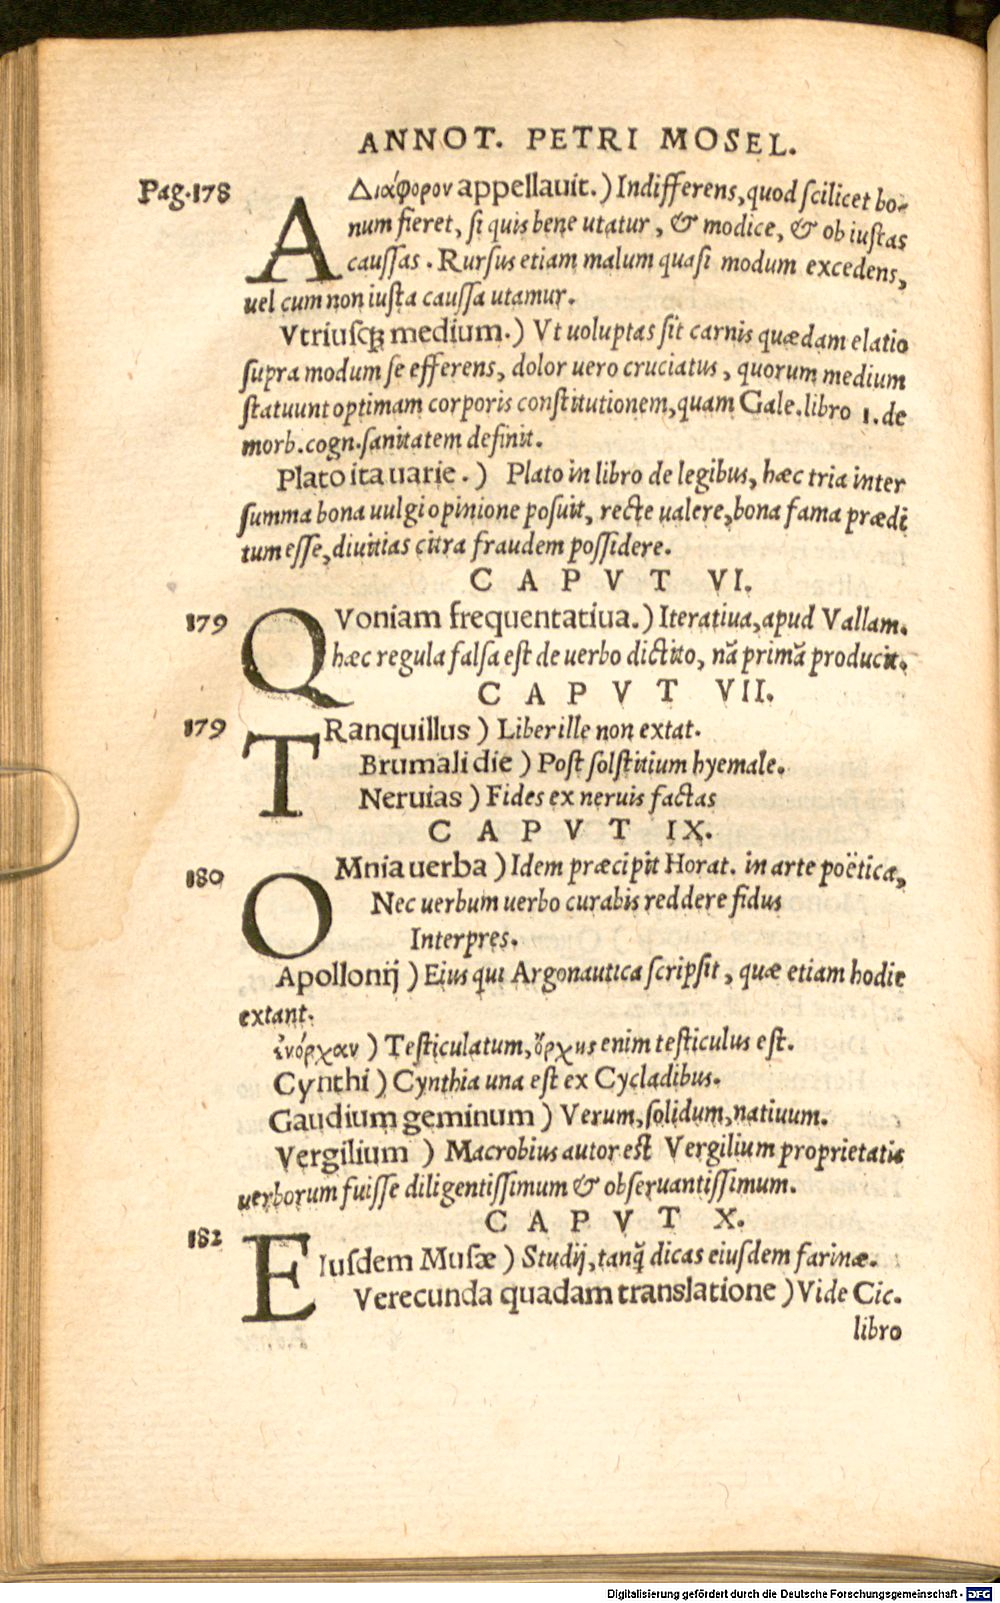 ANNOT. PETRI MOSEL.
Pag.178
AΔιάφορον appellauit.) Indifferens, quod scilicet bo-
num fieret, si quis bene utatur, & modice, & ob iustas
caussas. Rursus etiam malum quasi modum excedens,
uel cum non iusta caussa utamur.
Vtriusq; medium.) Vt uoluptas sit carnis quædam elatio
supra modum se efferens, dolor uero cruciatus, quorum medium
statuunt optimam corporis constitutionem, quam Gale. libro 1. de
morb. cogn. sanitatem definit.
Plato ita uarie.) Plato in libro de legibus, hæc tria inter
summa bona uulgi opinione posuit, recte ualere, bona fama prædi
tum esse, diuitias citra fraudem possidere.
CAPVT VI.
179
QVoniam frequentatiua.) Iteratiua, apud Vallam.
hæc regula falsa est de uerbo dictito, nã primã producit.
CAPVT VII.
179
TRanquillus) Liber ille non extat.
Brumali die) Post solstitium hyemale.
Neruias) Fides ex neruis factas
CAPVT IX.
180
OMnia uerba) Idem præcipit Horat. in arte poëtica,
Nec uerbum uerbo curabis reddere fidus
Interpres.
Apollonij) Eius qui Argonautica scripsit, quæ etiam hodie
extant.
ἐνόρχαν) Testiculatum, ὄρχις enim testiculus est.
Cynthi) Cynthia una est ex Cycladibus.
Gaudium geminum) Verum, solidum, natiuum.
Vergilium) Macrobius autor est Vergilium proprietatis
uerborum fuisse diligentissimum & obseruantissimum.
CAPVT X.
182
EIusdem Musæ) Studij, tanq̃ dicas eiusdem farinæ.
Verecunda quadam translatione) Vide Cic.
libro
Digitalisierung gefördert durch die Deutsche Forschungsgemeinschaft - DFG